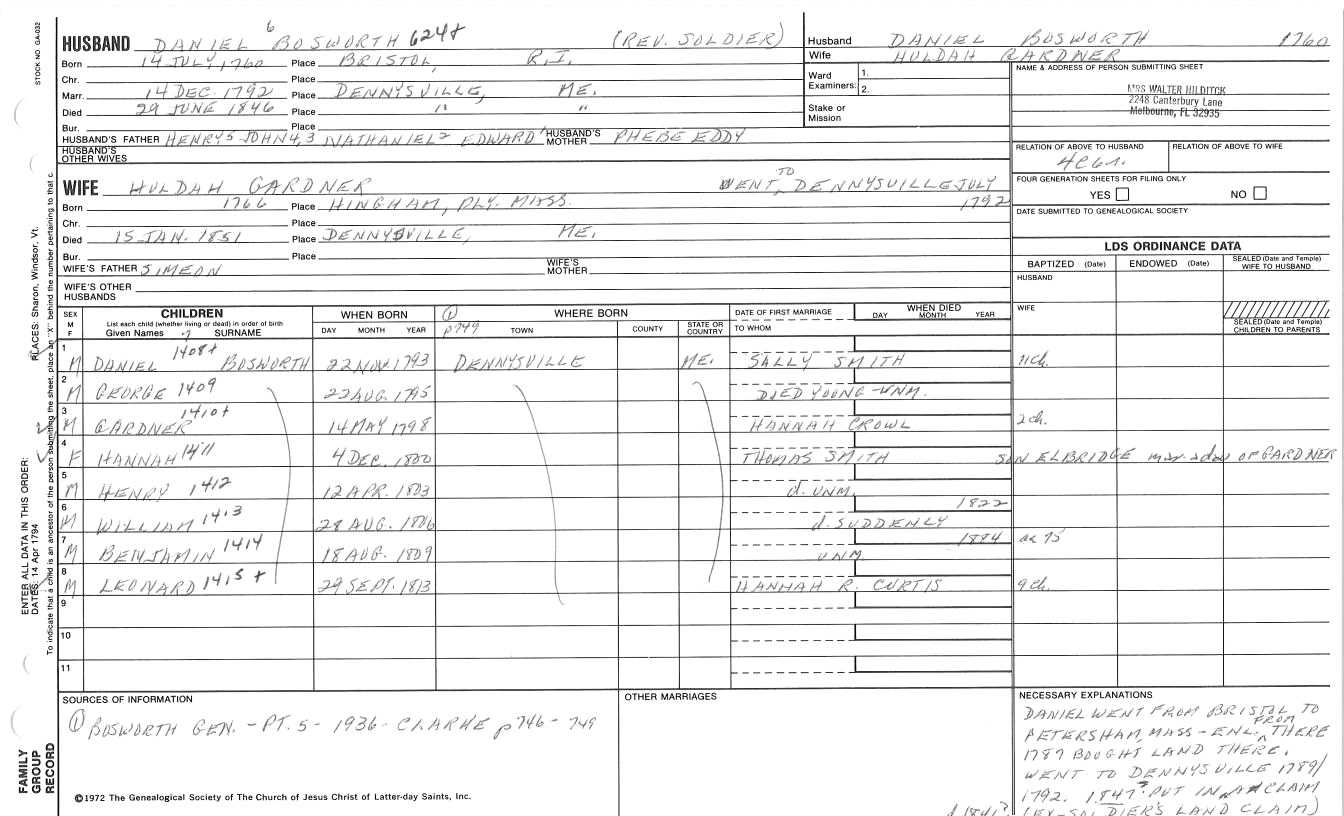 STOCK NO. GA-032
HUSBAND DANIEL 6 BOSWORTH 624+ (REV. SOLDIER)
Born 14 JULY, 1760 Place BRISTOL, R.I.
Chr. Place
Marr. 14 DEC. 1792 Place DENNYSVILLE, ME.
Died 29 JUNE 1846 Place " "
Bur. Place
HUSBAND'S FATHER HENRY5 JOHN4,3 NATHANIEL2 EDWARD1 HUSBAND'S MOTHER PHEBE EDDY
HUSBAND'S OTHER WIVES
Husband DANIEL BOSWORTH 1760
Wife HULDAH GARDNER
Ward Examiners: 1.
2.
Stake or Mission
NAME & ADDRESS OF PERSON SUBMITTING SHEET
MRS WALTER HILDITCH
2248 Canterbury Lane
Melbourne, FL 32935
RELATION OF ABOVE TO HUSBAND RELATION OF ABOVE TO WIFE
FOUR GENERATION SHEETS FOR FILING ONLY
YES NO
DATE SUBMITTED TO GENEALOGICAL SOCIETY
WIFE HULDAH GARDNER WENT TO DENNYSVILLE JULY 1792
Born 1766 Place HINGHAM, PLY. MASS.
Chr. Place
Died 15 JAN. 1851 Place DENNYSVILLE, ME.
Bur. Place
WIFE'S FATHER SIMEON WIFE'S MOTHER
WIFE'S OTHER HUSBANDS
LDS ORDINANCE DATA
BAPTIZED (Date) ENDOWED (Date) SEALED (Date and Temple) WIFE TO HUSBAND
HUSBAND
WIFE
SEALED (Date and Temple) CHILDREN TO PARENTS
SEX M F CHILDREN List each child (whether living or dead) in order of birth Given Names 7 SURNAME
WHEN BORN DAY MONTH YEAR
① p749 WHERE BORN TOWN COUNTY STATE OR COUNTRY
DATE OF FIRST MARRIAGE TO WHOM
WHEN DIED DAY MONTH YEAR
1 M DANIEL 1408+ BOSWORTH 22 NOV. 1793 DENNYSVILLE ME. SALLY SMITH 11ch.
2 M GEORGE 1409 22 AUG. 1795 DIED YOUNG - UNM.
3 M GARDNER 1410+ 14 MAY 1798 HANNAH CROWL 2ch.
4 F HANNAH 1411 4 DEC. 1800 THOMAS SMITH SON ELBRIDGE mar. a dau OF GARDNER
5 M HENRY 1412 12 APR. 1803 d. UNM.
6 M WILLIAM 1413 28 AUG. 1806 d. SUDDENLY 1822
7 M BENJAMIN 1414 18 AUG. 1809 UNM 1884 ae 75
8 M LEONARD 1415+ 29 SEPT. 1813 HANNAH R. CURTIS 9ch.
9
10
11
SOURCES OF INFORMATION
① BOSWORTH GEN. - PT. 5 - 1936 - CLARKE p746 - 749
©1972 The Genealogical Society of The Church of Jesus Christ of Latter-day Saints, Inc.
OTHER MARRIAGES
NECESSARY EXPLANATIONS
DANIEL WENT FROM BRISTOL TO
PETERSHAM, MASS - ENL. FROM THERE
1787 BOUGHT LAND THERE.
WENT TO DENNYSVILLE 1789/
1792. 1847? PUT IN A CLAIM
(EX-SOLDIER'S LAND CLAIM)
ENTER ALL DATA IN THIS ORDER:
DATES: 14 Apr 1794
PLACES: Sharon, Windsor, Vt.
To indicate that a child is an ancestor of the person submitting the sheet, place an "X" behind the number pertaining to that c.
FAMILY GROUP RECORD